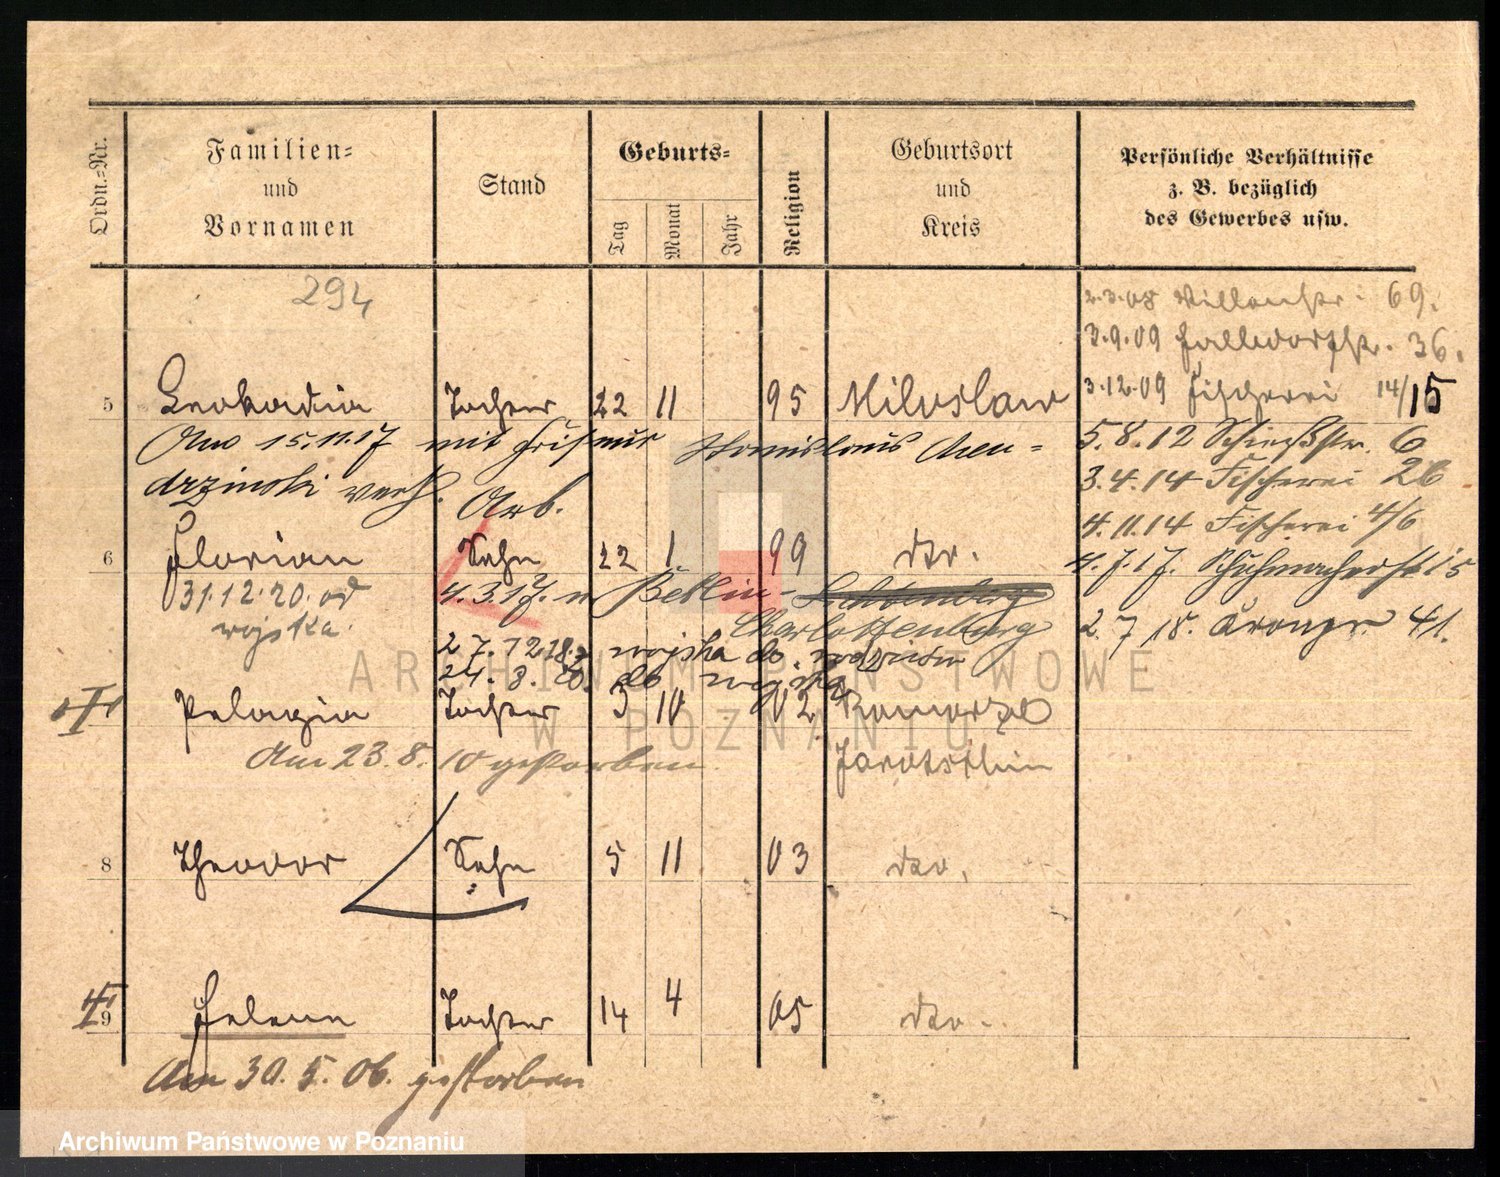 Ordn.-Nr.
Familien-
und
Vornamen
Stand
Geburts-
Tag
Monat
Jahr
Religion
Geburtsort
und
Kreis
Persönliche Verhältnisse
z. B. bezüglich
des Gewerbes usw.
294
2.3.08 Villenstr. 69.
3.9.09 36.
3.12.09 Fischerei 14/15
5 Leokadia Tochter 22 11 95 Miloslaw
5.8.12 Schießstr. 6
Am 15.11.17 mit Friseur Stanislaus
drzinski verh.
3.4.14 Fischerei 26
Arb.
4.11.14 Fischerei 4/6
6 Florian Sohn 22 1 99 dto.
4.7.17. Schuhmacherstr 15
31.12.20. od
wojska
4.3.17. n Berlin-
Charlottenburg
2.7.18. Kronpr. 41.
wojska do
do wojska
Pelagia Tochter 3 10 02 Komorze
Am 23.8.10 gestorben.
Jarotschin
8 Theodor Sohn 5 11 03 dto.
9 Helena Tochter 14 4 05 dto.
Am 30.5.06. gestorben
ARCHIWUM PAŃSTWOWE
W POZNANIU
Archiwum Państwowe w Poznaniu